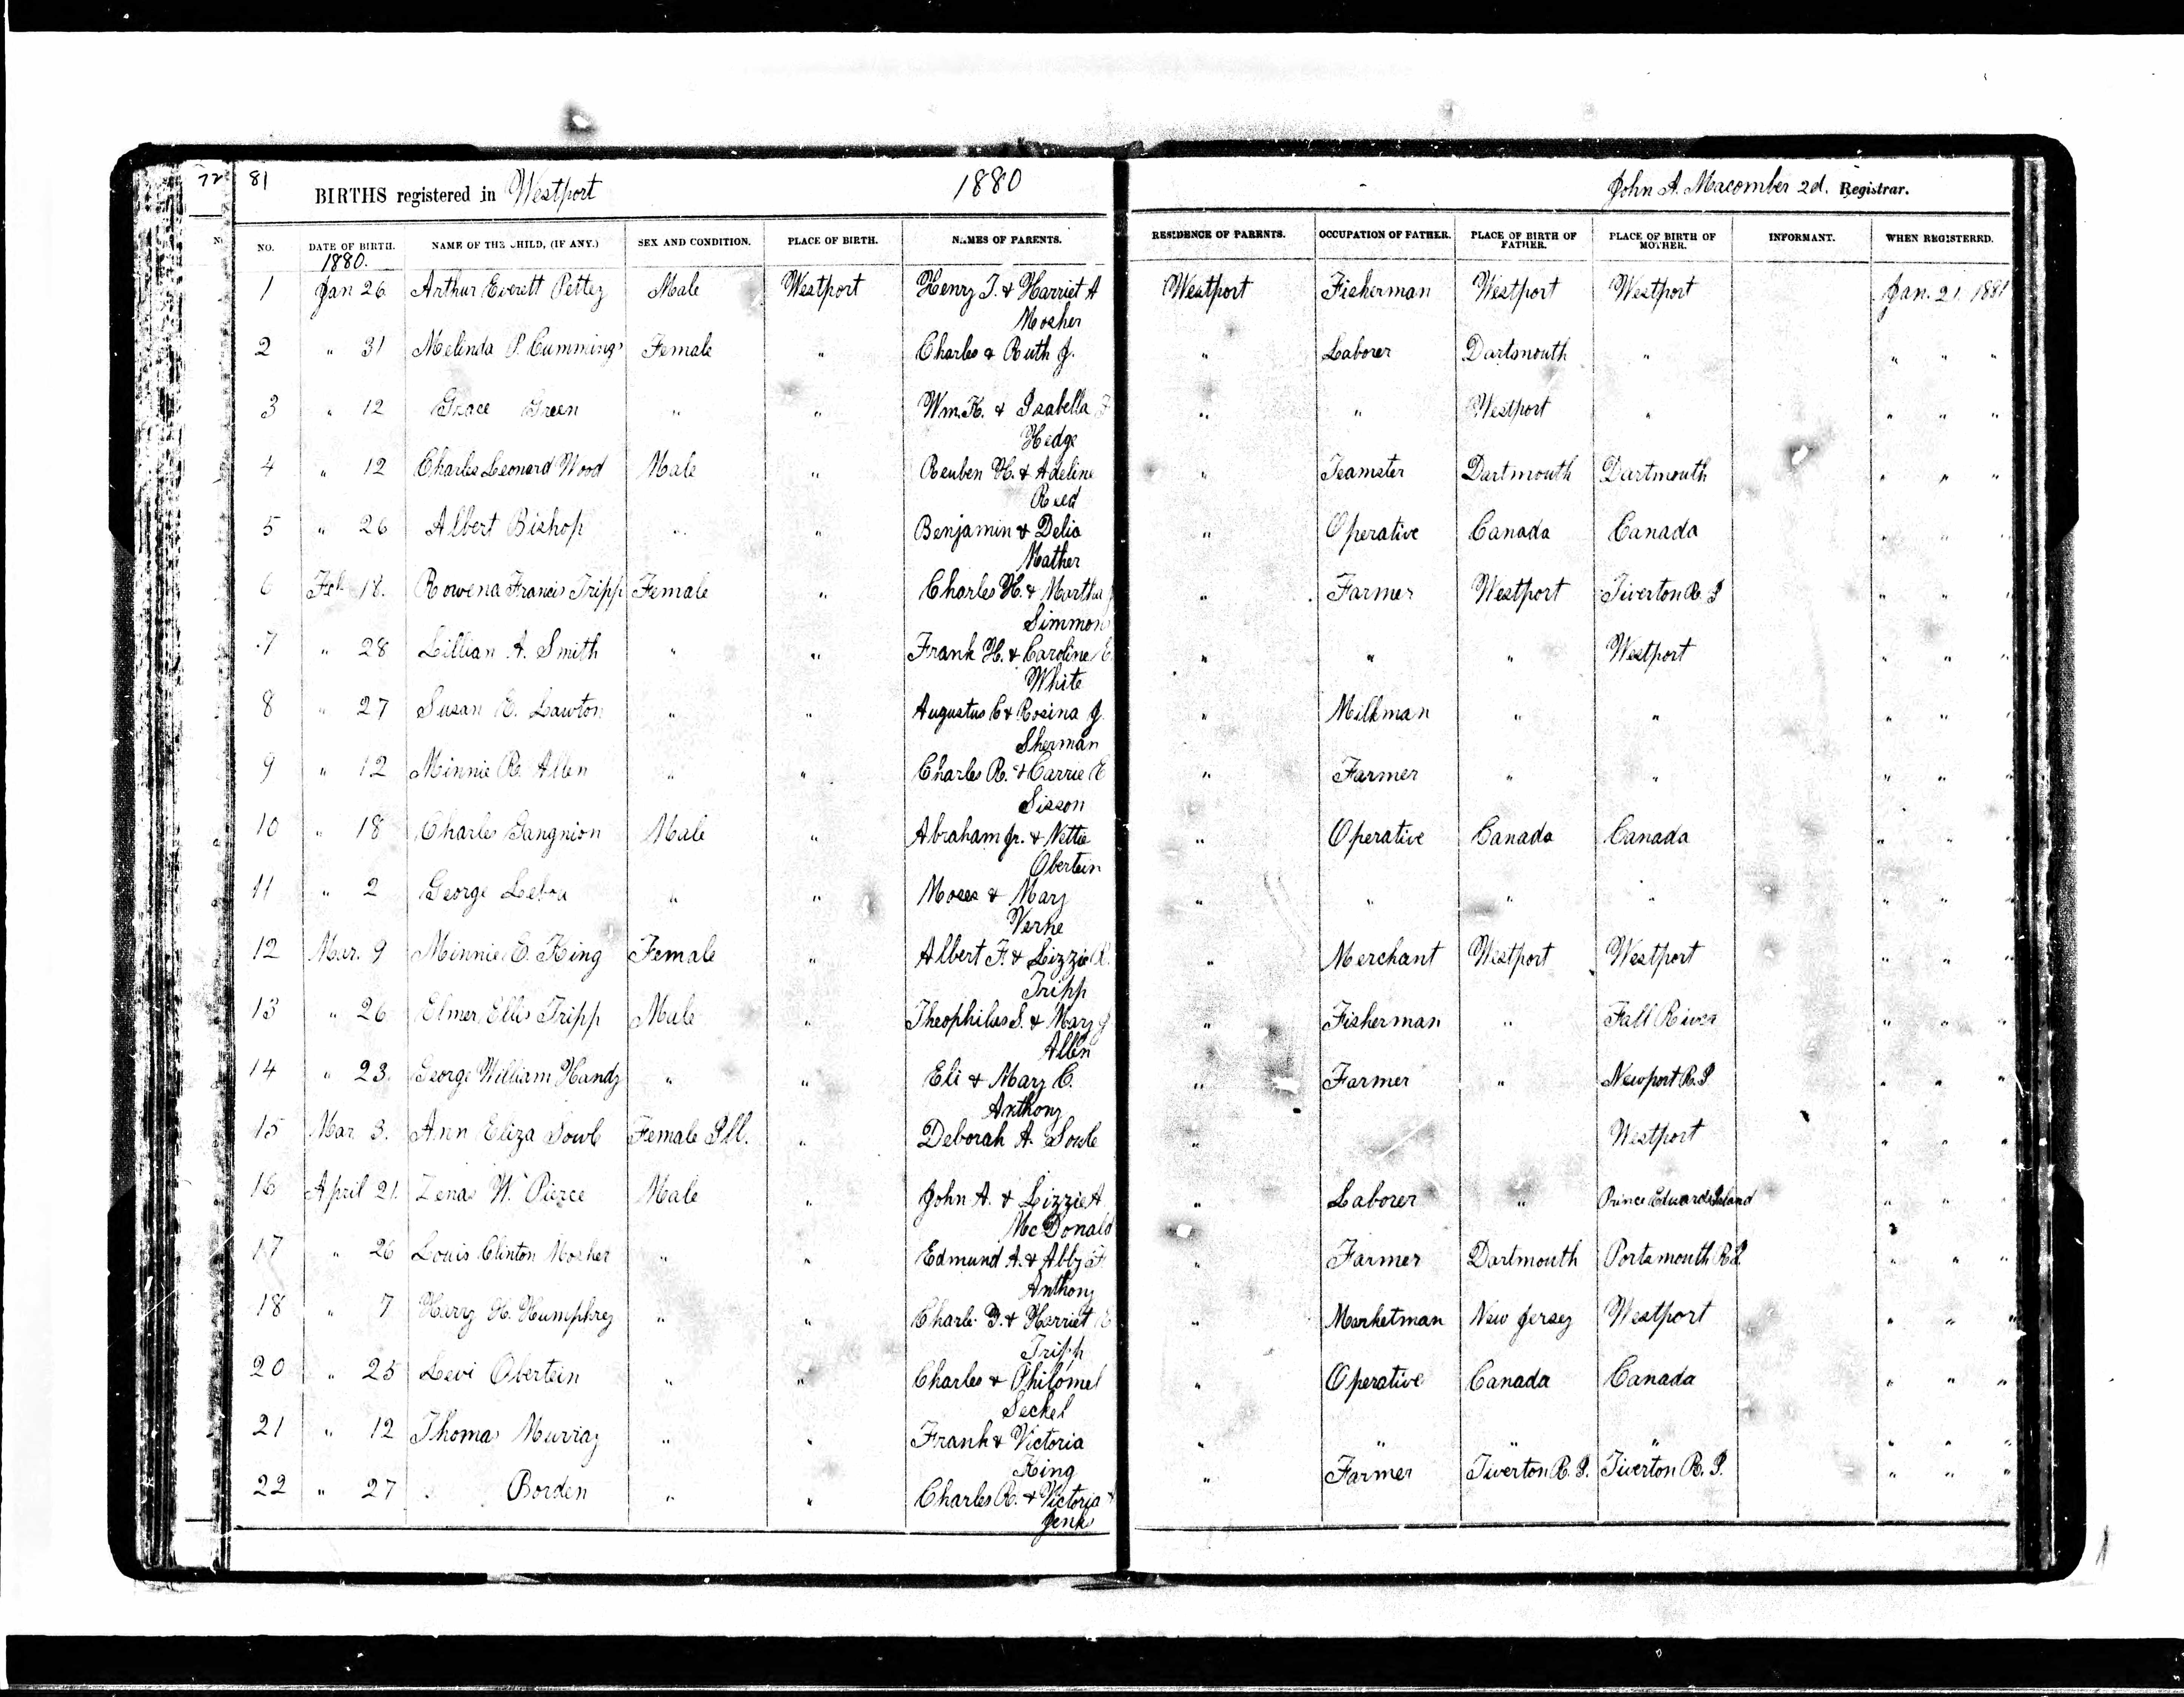 72 81
BIRTHS registered in Westport 1880 John A. Macomber 2d. Registrar.
NO. DATE OF BIRTH. NAME OF THE CHILD, (IF ANY.) SEX AND CONDITION. PLACE OF BIRTH. NAMES OF PARENTS. RESIDENCE OF PARENTS. OCCUPATION OF FATHER. PLACE OF BIRTH OF FATHER. PLACE OF BIRTH OF MOTHER. INFORMANT. WHEN REGISTERED.
1880.
1 Jan 26 Arthur Everett Pettey Male Westport Henry T. & Harriet A Westport Fisherman Westport Westport Jan. 21. 1881
Mosher
2 " 31 Melinda P. Cummings Female " Charles & Ruth J. " Laborer Dartmouth " " " "
3 " 12 Grace Green " " Wm. K. & Isabella " " Westport " " " "
Hedge
4 " 12 Charles Leonard Wood Male " Reuben H. & Adeline " Teamster Dartmouth Dartmouth " " "
Reed
5 " 26 Albert Bishop " " Benjamin & Delia " Operative Canada Canada " " "
Mather
6 Feb 18. Rowena Francis Tripp Female " Charles H. & Martha " Farmer Westport Tiverton R. I " " "
Simmons
7 " 28 Lillian A. Smith " " Frank H. & Caroline E. " " " Westport " " "
White
8 " 27 Susan E. Lawton " " Augustus C & Rosina J. " Milkman " " " " "
Sherman
9 " 12 Minnie R. Allen " " Charles R. & Carrie E " Farmer " " " " "
Sisson
10 " 18 Charles Gangnion Male " Abraham Jr. & Nettie " Operative Canada Canada " " "
Obertein
11 " 2 George " " Moses & Mary " " " " " " "
Verne
12 Mar. 9 Minnie E. King Female " Albert F. & Lizzie " Merchant Westport Westport " " "
Tripp
13 " 26 Elmer Ellis Tripp Male " Theophilus S. & Mary J " Fisherman " Fall River " " "
Allen
14 " 23. George William Handy " " Eli & Mary C. " Farmer " Newport R. I " " "
Anthony
15 Mar 3. Ann Eliza Sowle Female Ill. " Deborah A. Sowle " Westport " " "
16 April 21. Zenas W. Pierce Male " John A. & Lizzie A " Laborer " Prince Edwards Island " " "
McDonald
17 " 26 Louis Clinton Mosher " " Edmund A. & Abby " Farmer Dartmouth Portsmouth R.I. " " "
Anthony
18 " 7 Harry H. Humphrey " " Charles & Harriet E " Marketman New Jersey Westport " " "
Tripp
20 " 25 Levi Obertein " " Charles & Philomel " Operative Canada Canada " " "
Seckel
21 " 12 Thomas Murray " " Frank & Victoria " " " " " " "
King
22 " 27 Borden " " Charles R. & Victoria " Farmer Tiverton R. I. Tiverton R. I. " " "
Jenks